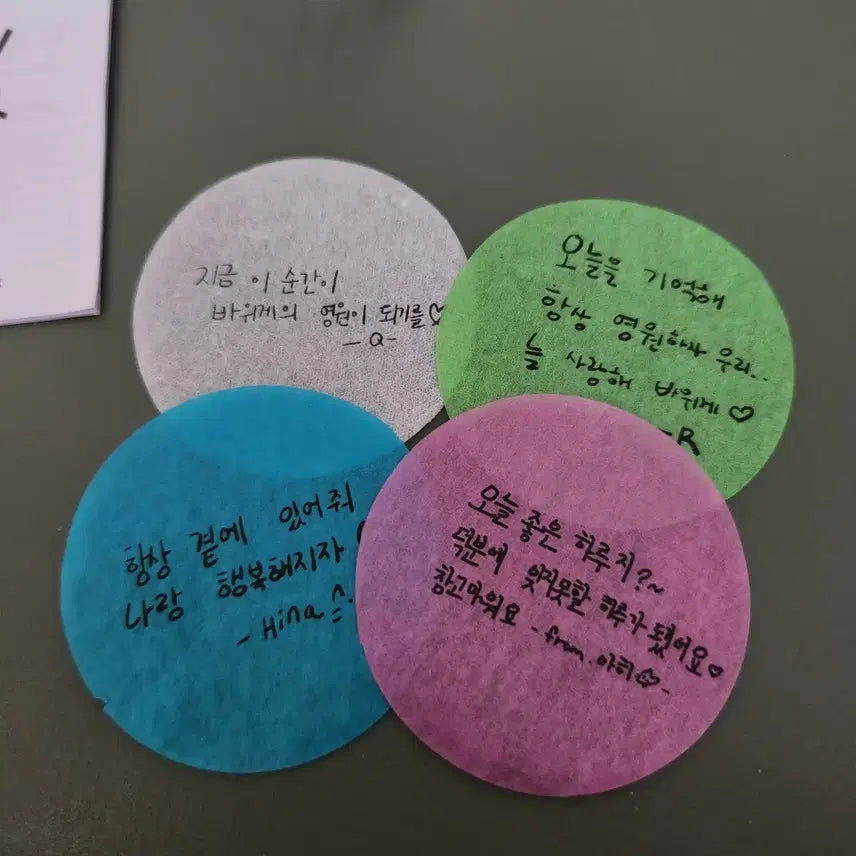 지금 이 순간이
바위게의 영원이 되기를♡
-Q-
오늘을 기억해
항상 영원하자 우리..
늘 사랑해 바위게♡
-R
항상 곁에 있어줘
나랑 행복해지자
-Hina
오늘 좋은 하루지?~
덕분에 잊지못할 하루가 됐어요♡
참고마워요 -from.아히